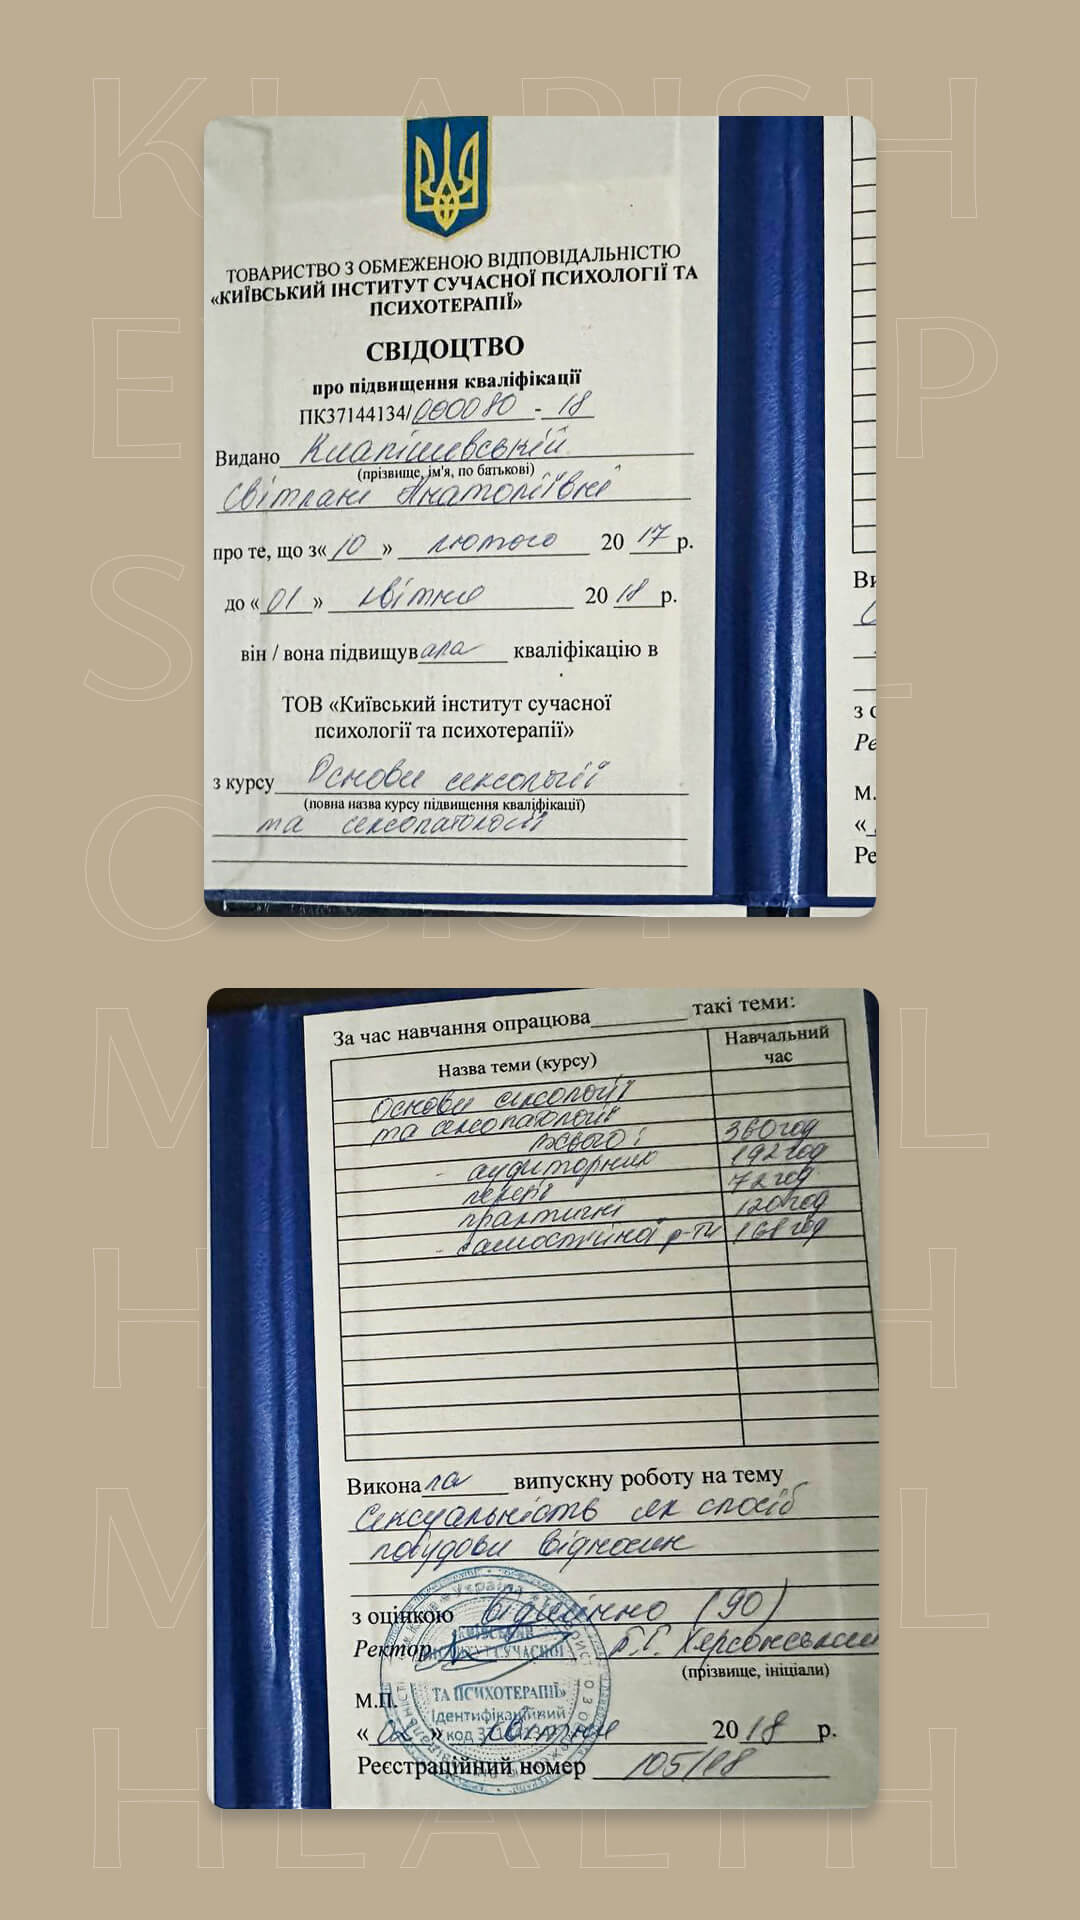 ТОВАРИСТВО З ОБМЕЖЕНОЮ ВІДПОВІДАЛЬНІСТЮ
«КИЇВСЬКИЙ ІНСТИТУТ СУЧАСНОЇ ПСИХОЛОГІЇ ТА
ПСИХОТЕРАПІЇ»
СВІДОЦТВО
про підвищення кваліфікації
ПК37144134/000080 - 18
Видано Клапішевській
(прізвище, ім'я, по батькові)
Світлані Анатоліївні
про те, що з« 10 » лютого 20 17 р.
до « 01 » квітня 20 18 р.
він / вона підвищувала кваліфікацію в
ТОВ «Київський інститут сучасної
психології та психотерапії»
з курсу Основи сексології
(повна назва курсу підвищення кваліфікації)
та сексопатології
За час навчання опрацюва такі теми:
Назва теми (курсу) Навчальний час
Основи сексології
та сексопатології
всього: 360 год
- аудиторних 192 год
лекції 72 год
практичні 120 год
- самостійної р-ти 168 год
Виконала випускну роботу на тему
Сексуальність як спосіб
побудови відносин
з оцінкою відмінно (90)
Ректор Б.Г. Херсонський
(прізвище, ініціали)
М.П.
« 02 » квітня 20 18 р.
Реєстраційний номер 105/18
КИЇВСЬКИЙ
ІНСТИТУТ СУЧАСНОЇ
ТА ПСИХОТЕРАПІЇ»
Ідентифікаційний
код